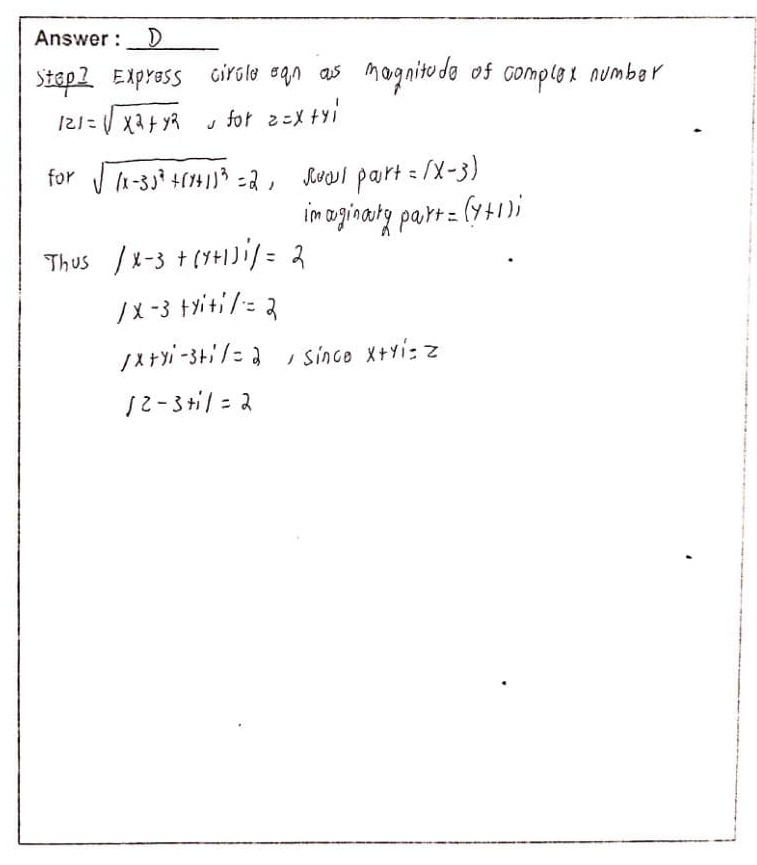 Answer : D
Step 2 Express circle eqn as magnitude of complex number
|z| = √x²+y² , for z = x+yi
for √(x-3)²+(y+1)² = 2 , Real part = (x-3)
imaginary part = (y+1)i
Thus |x-3+(y+1)i| = 2
|x-3+yi+i| = 2
|x+yi-3+i| = 2 , since x+yi = z
|z-3+i| = 2